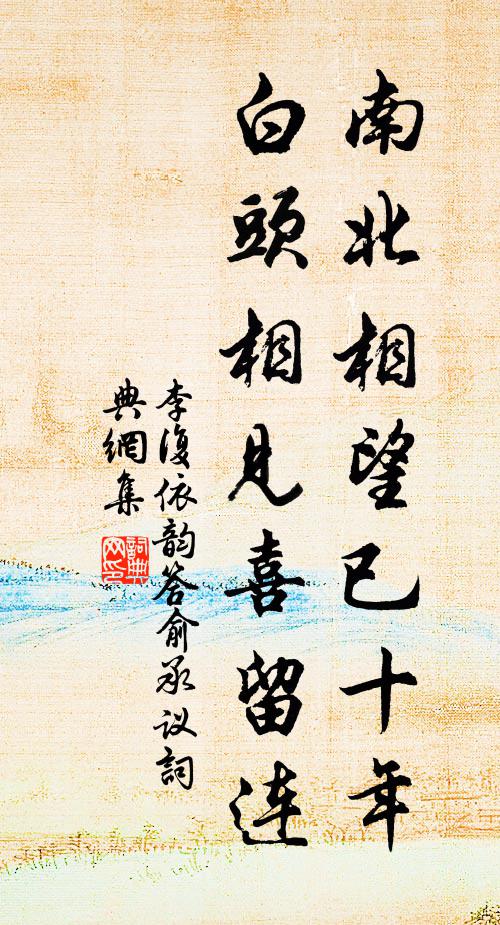 南北相望已十年
白頭相見喜留连
李復依韵答俞承议詞
典網集
詞典
网印